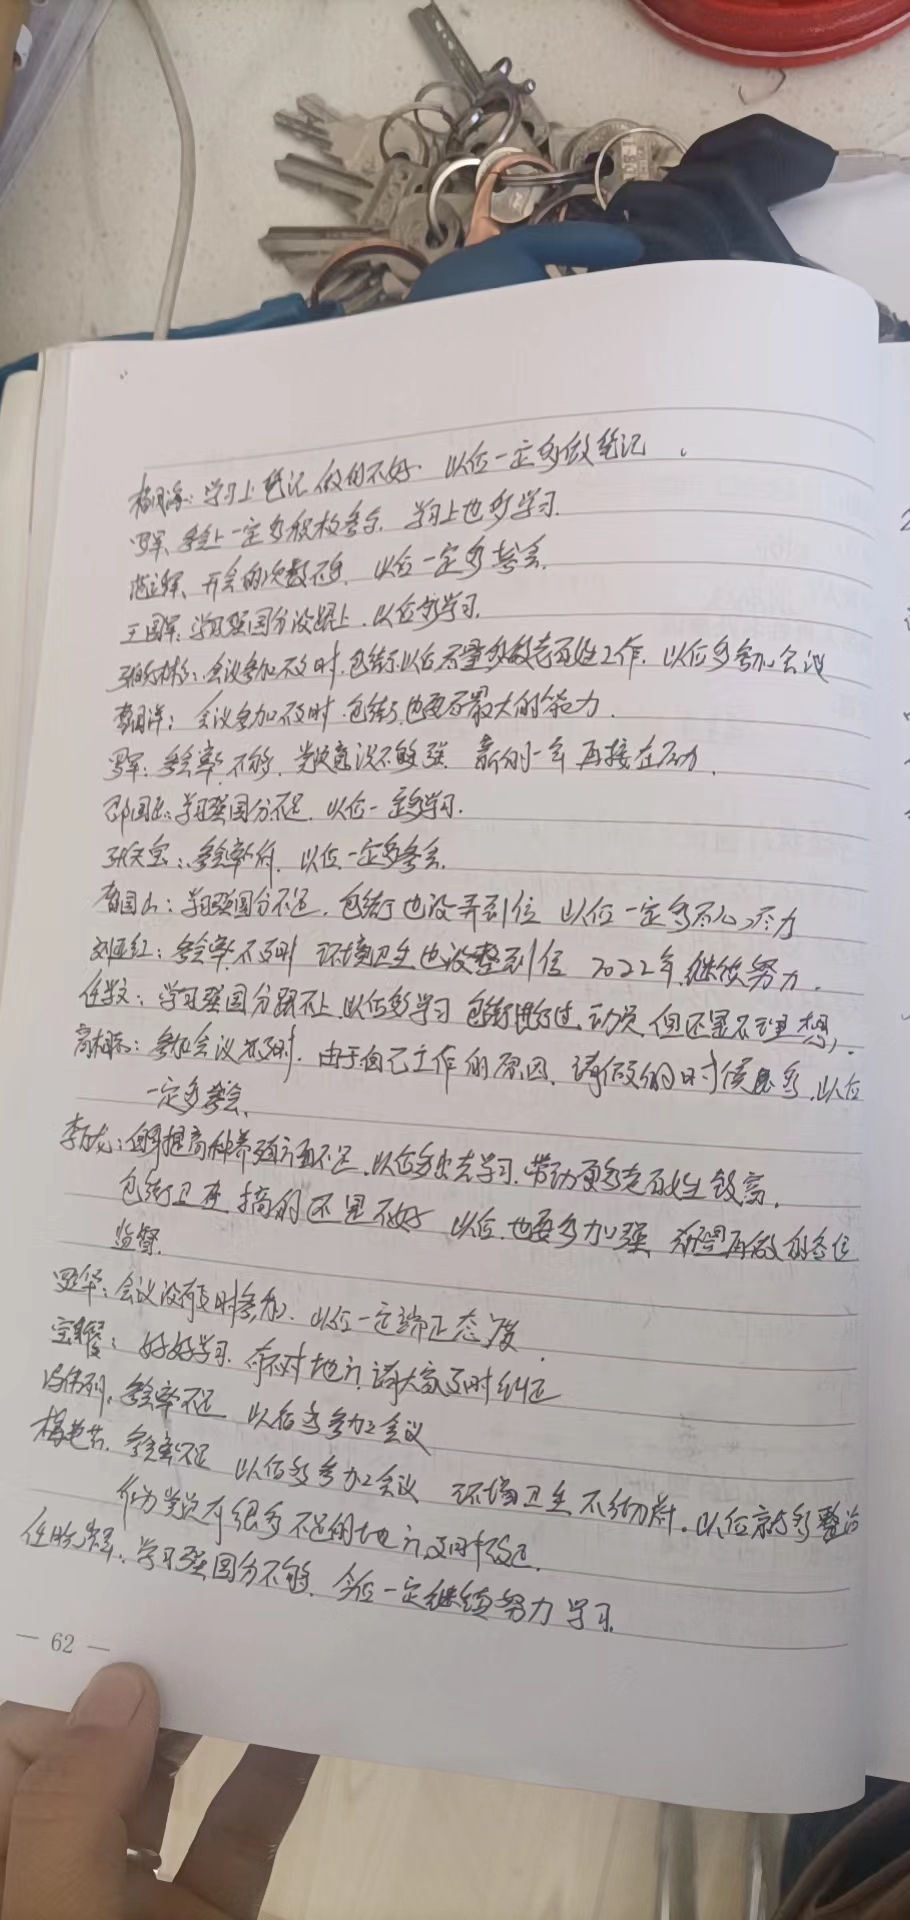 学习上笔记做的不好. 以后一定多做笔记.
参会上一定多积极参与. 学习上也多学习.
开会的次数不多. 以后一定多参会.
王国军: 学习强国分没跟上. 以后多学习.
会议参加不及时. 包街以后尽量多做老百姓工作. 以后多参加会议
会议参加不及时. 包街也要尽最大的能力.
罗军: 参会率不够. 党员意识不够强. 新的一年再接在历力.
邵国 学习强国分不足. 以后一定多学习.
张天宝: 参会率低. 以后一定多参会.
李国山: 学习强国分不足. 包街也没弄到位 以后一定多尽心尽力
刘亚红: 参会率不及时 环境卫生也没整到位 2022年继续努力.
任学文: 学习强国分跟不上 以后多学习 包街进行过动员, 但还是不理想,
参加会议不及时. 由于自己工作的原因. 请假的时侯 多. 以后
一定多参会.
李 龙: 提高种养殖方面不足. 以后多出去学习. 带动更多老百姓致富.
包街卫生搞的还是不好 以后也要多加强 希望再做的各位
监督.
罗华: 会议没有及时参加. 以后一定端正态度
好好学习. 有不对地方. 请大家及时纠正
参会率不足 以后多参加会议
杨艳芳. 参会率不足 以后多参加会议 环境卫生不彻底. 以后就多整治
作为党员有很多不足的地方. 及时改正.
任 学习强国分不够. 今后一定继续努力学习.
— 62 —